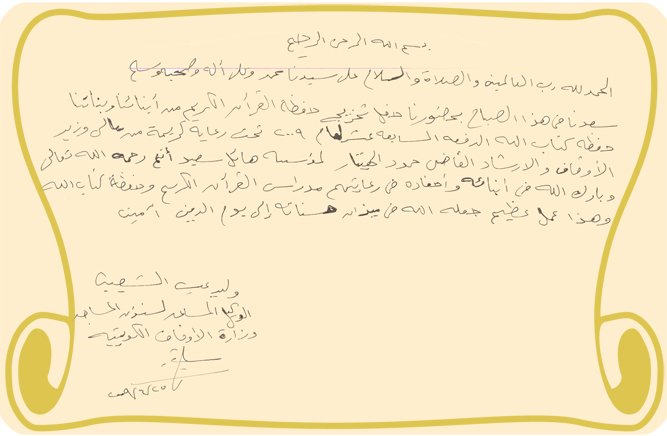 بسم الله الرحمن الرحيم
الحمد لله رب العالمين والصلاة والسلام على سيدنا محمد وعلى آله وصحبه وسلم
سعدنا في هذا الصباح بحضورنا حفل تخريج حفظة القرآن الكريم من أبنائنا وبناتنا
حفظة كتاب الله الدفعة السابعة عشر لعام ٢٠٠٩ تحت رعاية كريمة من معالي وزير
الأوقاف والإرشاد القاضي حمود الهتار لمؤسسة هائل سعيد أنعم رحمه الله تعالى
وبارك الله في أبنائه وأحفاده في رعايتهم مدارس القرآن الكريم وحفظة كتاب الله
وهذا عمل عظيم جعله الله في ميزان حسناته إلى يوم الدين آمين
وليد الشعيب
الوكيل المساعد لشئون المساجد
وزارة الأوقاف الكويتية